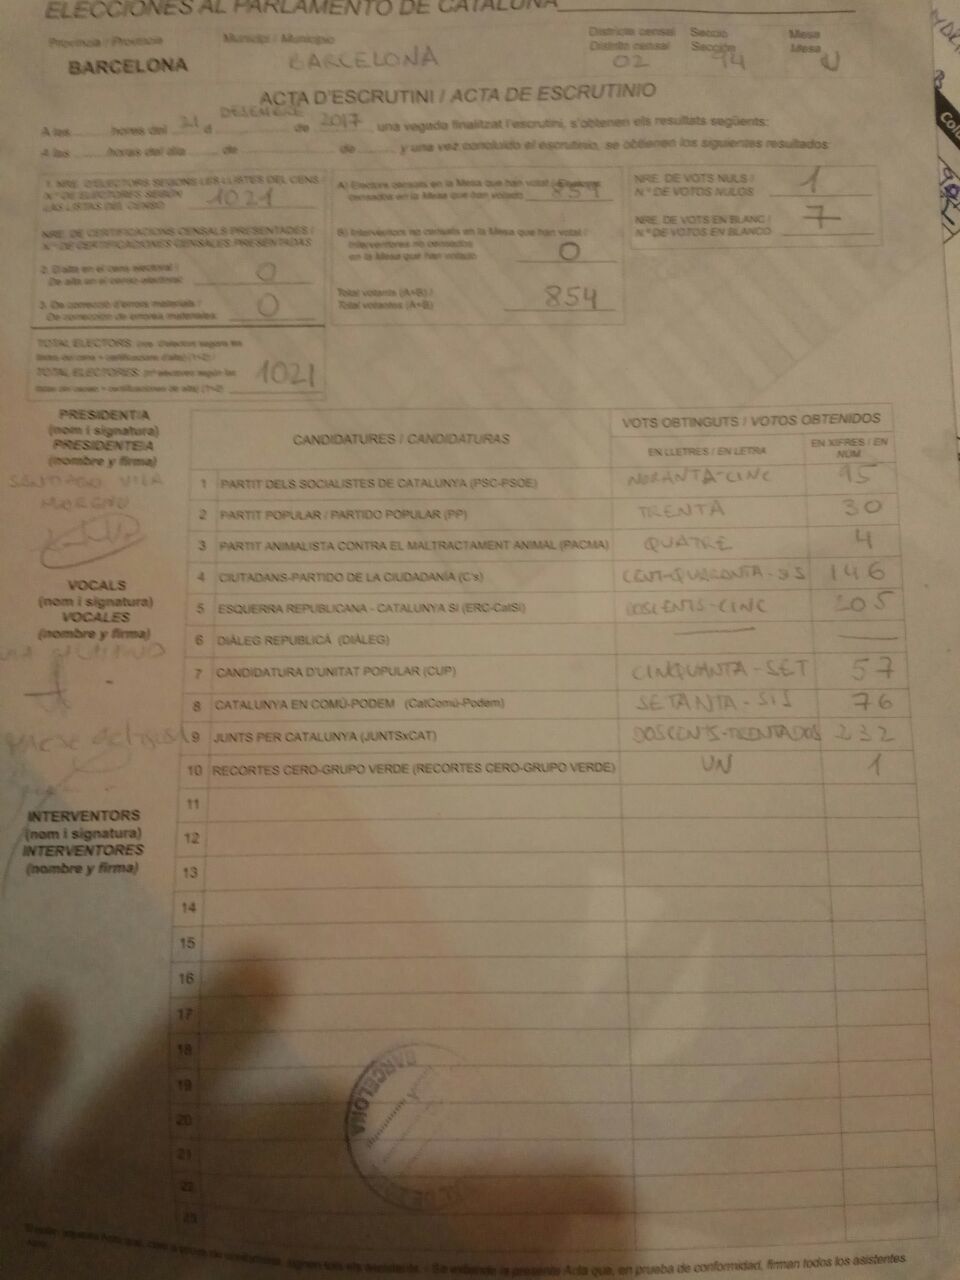 ELECCIONES AL PARLAMENTO DE CATALUÑA
Província / Provincia
BARCELONA
Municipi / Municipio
BARCELONA
Districte censal
Distrito censal
02
Secció
Sección
94
Mesa
Mesa
U
ACTA D'ESCRUTINI / ACTA DE ESCRUTINIO
A les hores del 21 d DESEMBRE de 2017 una vegada finalitzat l'escrutini, s'obtenen els resultats següents:
A las horas del día de de y una vez concluido el escrutinio, se obtienen los siguientes resultados:
1. NRE. D'ELECTORS SEGONS LES LLISTES DEL CENS /
N.º DE ELECTORES SEGÚN
LAS LISTAS DEL CENSO
1021
NRE. DE CERTIFICACIONS CENSALS PRESENTADES /
N.º DE CERTIFICACIONES CENSALES PRESENTADAS
2. D'alta en el cens electoral /
De alta en el censo electoral:
0
3. De correcció d'errors materials /
De corrección de errores materiales:
0
TOTAL ELECTORS: (nre. d'electors segons les
llistes del cens + certificacions d'alta) (1+2) /
TOTAL ELECTORES: (nº electores según las
listas del censo + certificaciones de alta) (1+2)
1021
A) Electors censats en la Mesa que han votat / Electores
censados en la Mesa que han votado
854
B) Interventors no censats en la Mesa que han votat /
Interventores no censados
en la Mesa que han votado
0
Total votants (A+B) /
Total votantes (A+B)
854
NRE. DE VOTS NULS /
N.º DE VOTOS NULOS
1
NRE. DE VOTS EN BLANC /
N.º DE VOTOS EN BLANCO
7
PRESIDENT/A
(nom i signatura)
PRESIDENTE/A
(nombre y firma)
SANTIAGO VILA
VOCALS
(nom i signatura)
VOCALES
(nombre y firma)
INTERVENTORS
(nom i signatura)
INTERVENTORES
(nombre y firma)
CANDIDATURES / CANDIDATURAS
VOTS OBTINGUTS / VOTOS OBTENIDOS
EN LLETRES / EN LETRA
EN XIFRES / EN NÚM
1 PARTIT DELS SOCIALISTES DE CATALUNYA (PSC-PSOE) NORANTA-CINC 95
2 PARTIT POPULAR / PARTIDO POPULAR (PP) TRENTA 30
3 PARTIT ANIMALISTA CONTRA EL MALTRACTAMENT ANIMAL (PACMA) QUATRE 4
4 CIUTADANS-PARTIDO DE LA CIUDADANÍA (C's) CENT-QUARANTA-SIS 146
5 ESQUERRA REPUBLICANA - CATALUNYA SÍ (ERC-CatSí) DOSCENTS-CINC 205
6 DIÀLEG REPUBLICÀ (DIÀLEG)
7 CANDIDATURA D'UNITAT POPULAR (CUP) CINQUANTA-SET 57
8 CATALUNYA EN COMÚ-PODEM (CatComú-Podem) SETANTA-SIS 76
9 JUNTS PER CATALUNYA (JUNTSxCAT) DOSCENTS-TRENTADOS 232
10 RECORTES CERO-GRUPO VERDE (RECORTES CERO-GRUPO VERDE) UN 1
11
12
13
14
15
16
17
18
19
20
21
22
23
BARCELONA
Se extiende la presente Acta que, en prueba de conformidad, firman todos los asistentes